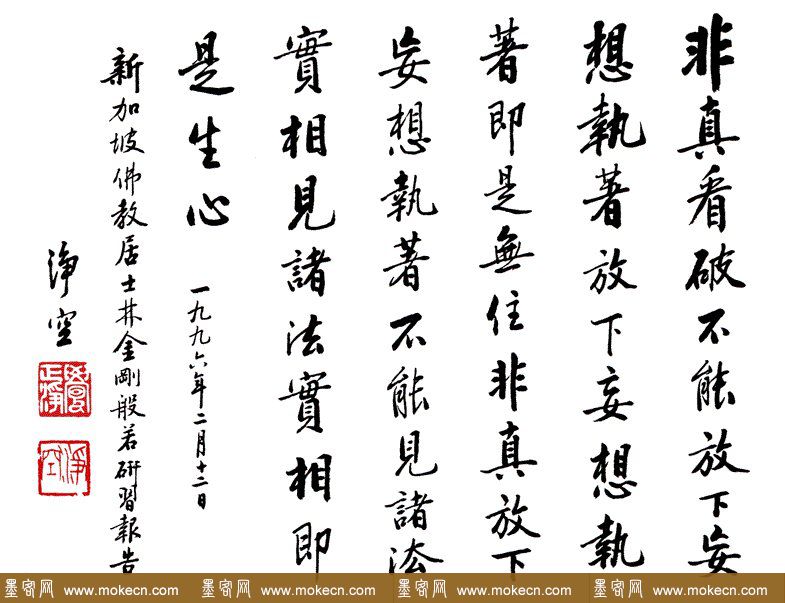 非真看破不能放下妄
想執著放下妄想執
著即是無住非真放下
妄想執著不能見諸法
實相見諸法實相即
是生心
一九九六年二月十二日
新加坡佛教居士林金剛般若研習報告
淨空
淨空
墨客网 www.mokecn.com 墨客网 www.mokecn.com 墨客网 www.mokecn.com 墨客网 www.mokecn.com